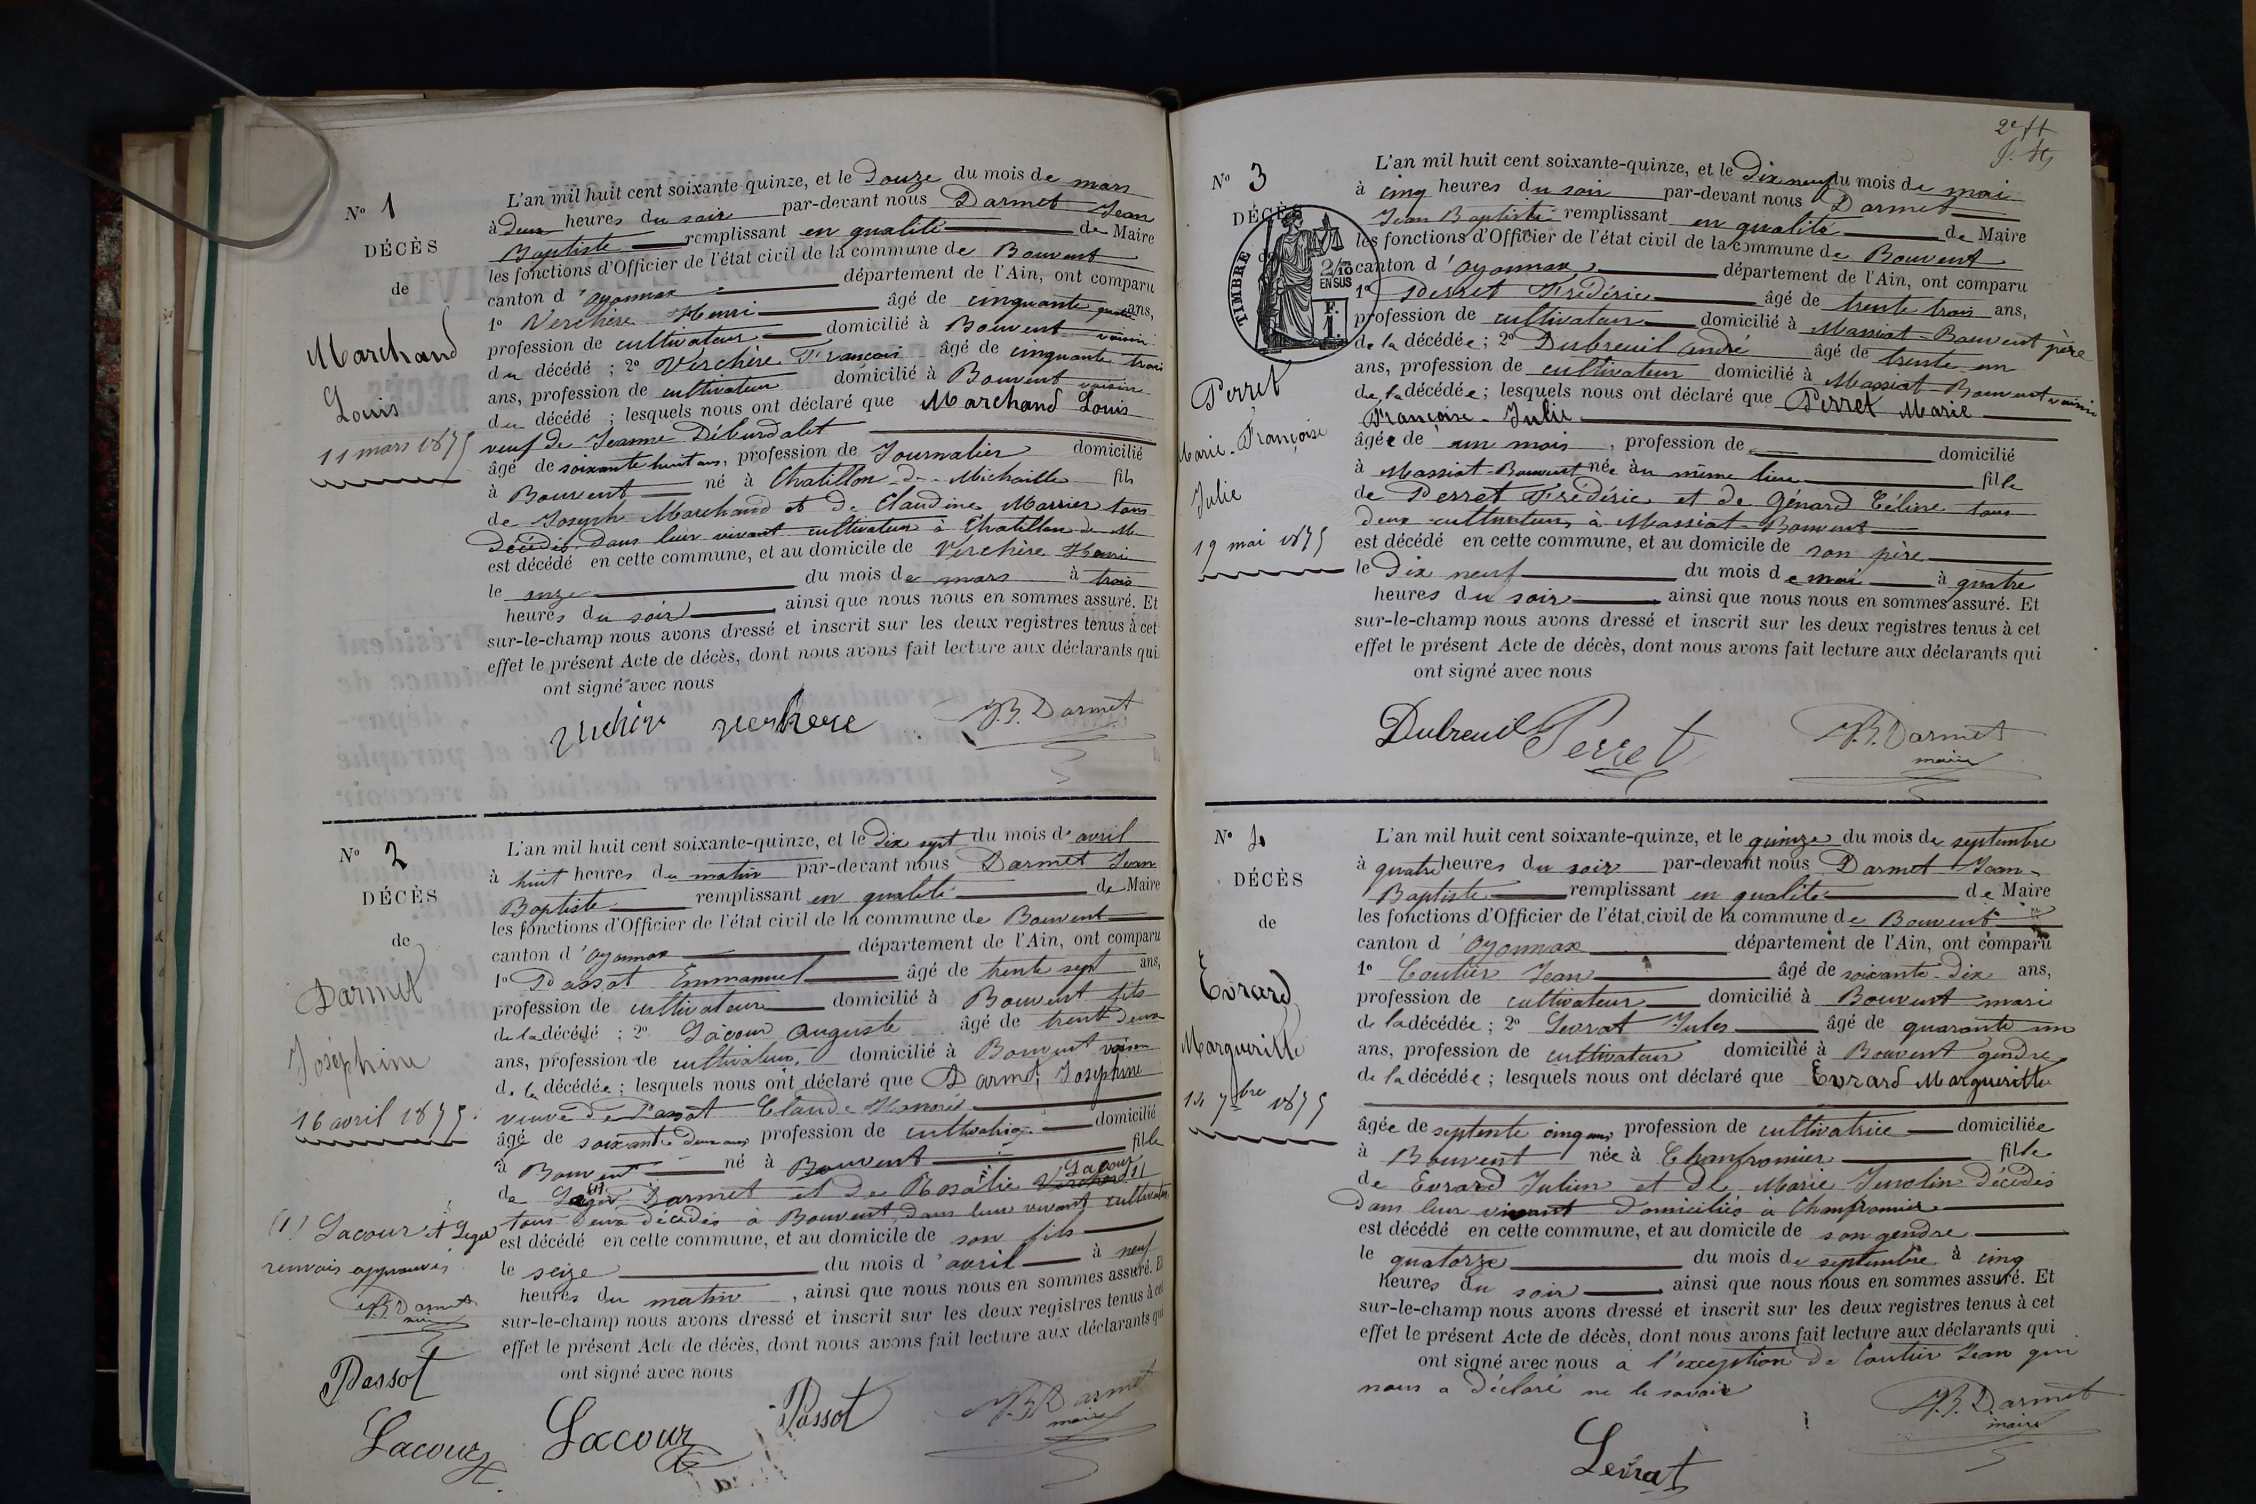 N° 1
DÉCÈS
de
Marchand
Louis
11 mars 1875
L'an mil huit cent soixante-quinze, et le Douze du mois de mars
à Deux heures du soir par-devant nous Darmet Jean
Baptiste remplissant en qualité de Maire
les fonctions d'Officier de l'état civil de la commune de Bouvent
canton d'Oyonnax département de l'Ain, ont comparu
1° Verchère Henri âgé de cinquante quatre ans,
profession de cultivateur domicilié à Bouvent voisin
du décédé ; 2° Verchère François âgé de cinquante trois
ans, profession de cultivateur domicilié à Bouvent voisin
du décédé ; lesquels nous ont déclaré que Marchand Louis
veuf de Jeanne Déburdalet
âgé de soixante huit ans, profession de Journalier domicilié
à Bouvent né à Chatillon de Michaille fils
de Joseph Marchand et de Claudine Marrier tous
décédés dans leur vivant cultivateurs à Chatillon de M
est décédé en cette commune, et au domicile de Verchère Henri
le onze du mois de mars à trois
heures du soir ainsi que nous nous en sommes assuré. Et
sur-le-champ nous avons dressé et inscrit sur les deux registres tenus à cet
effet le présent Acte de décès, dont nous avons fait lecture aux déclarants qui
ont signé avec nous
Verchère verchere J.B. Darmet
N° 2
DÉCÈS
de
Darmet
Joséphine
16 avril 1875
L'an mil huit cent soixante-quinze, et le Dix sept du mois d'avril
à huit heures du matin par-devant nous Darmet Jean
Baptiste remplissant en qualité de Maire
les fonctions d'Officier de l'état civil de la commune de Bouvent
canton d'Oyonnax département de l'Ain, ont comparu
1° Passot Emmanuel âgé de trente sept ans,
profession de cultivateur domicilié à Bouvent fils
de la décédé ; 2° Lacour Auguste âgé de trent deux
ans, profession de cultivateur, domicilié à Bouvent voisin
de la décédée ; lesquels nous ont déclaré que Darmet Joséphine
veuve de Passot Claude Honoré
âgé de soixante deux ans profession de cultivatrice domicilié
à Bouvent né à Bouvent fille
de Léger Darmet et de Rosalie Lacour (1)
tous deux décédés à Bouvent, dans leur vivant cultivateurs
est décédé en cette commune, et au domicile de son fils
le seize du mois d'avril à neuf
heures du matin, ainsi que nous nous en sommes assuré. Et
sur-le-champ nous avons dressé et inscrit sur les deux registres tenus à cet
effet le présent Acte de décès, dont nous avons fait lecture aux déclarants qui
ont signé avec nous
(1) Lacour et Léger
renvois approuvés
J.B. Darmet
maire
Passot
Lacour
Lacour Passot J.B. Darmet
maire
2e ft
N° 3
DÉCÈS
TIMBRE
2/10
EN SUS
F.
1.
Perret
Marie-Françoise
Julie
19 mai 1875
L'an mil huit cent soixante-quinze, et le Dix neuf du mois de mai
à cinq heures du soir par-devant nous Darmet
Jean Baptiste remplissant en qualité de Maire
les fonctions d'Officier de l'état civil de la commune de Bouvent
canton d'Oyonnax département de l'Ain, ont comparu
1° Perret Frédéric âgé de trente trois ans,
profession de cultivateur domicilié à Massiat-Bouvent père
de la décédée ; 2° Dubreuil André âgé de trente un
ans, profession de cultivateur domicilié à Massiat Bouvent voisin
de la décédée ; lesquels nous ont déclaré que Perret Marie
Françoise-Julie
âgée de un mois, profession de domicilié
à Massiat-Bouvent née au même lieu fille
de Perret Frédéric et de Génard Céline tous
deux cultivateurs à Massiat-Bouvent
est décédé en cette commune, et au domicile de son père
le Dix neuf du mois de mai à quatre
heures du soir ainsi que nous nous en sommes assuré. Et
sur-le-champ nous avons dressé et inscrit sur les deux registres tenus à cet
effet le présent Acte de décès, dont nous avons fait lecture aux déclarants qui
ont signé avec nous
Dubreuil Perret J.B. Darmet
maire
N° 4
DÉCÈS
de
Evrard
Margueritte
14 7bre 1875
L'an mil huit cent soixante-quinze, et le quinze du mois de septembre
à quatre heures du soir par-devant nous Darmet Jean-
Baptiste remplissant en qualité de Maire
les fonctions d'Officier de l'état civil de la commune de Bouvent
canton d'Oyonnax département de l'Ain, ont comparu
1° Coutier Jean âgé de soixante-dix ans,
profession de cultivateur domicilié à Bouvent mari
de la décédée ; 2° Levrat Jules âgé de quarante un
ans, profession de cultivateur domicilié à Bouvent gendre
de la décédée ; lesquels nous ont déclaré que Evrard Margueritte
âgée de septente cinq ans, profession de cultivatrice domiciliée
à Bouvent née à Chanfromier fille
de Evrard Julien et de Marie Décédés
Dans leur vivant Domiciliés à Champfromier
est décédé en cette commune, et au domicile de son gendre
le quatorze du mois de septembre à cinq
heures du soir ainsi que nous nous en sommes assuré. Et
sur-le-champ nous avons dressé et inscrit sur les deux registres tenus à cet
effet le présent Acte de décès, dont nous avons fait lecture aux déclarants qui
ont signé avec nous à l'exception de Coutier Jean qui
nous a déclaré ne le savoir
J.B. Darmet
maire
Levrat